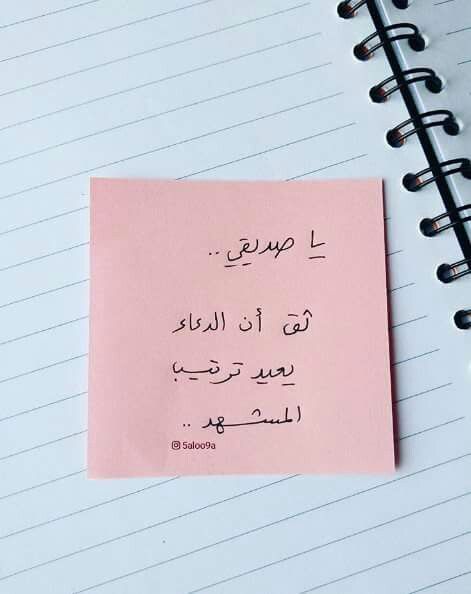 يا صديقي..
ثق أن الدعاء
يعيد ترتيب
المشهد..
5aloo9a